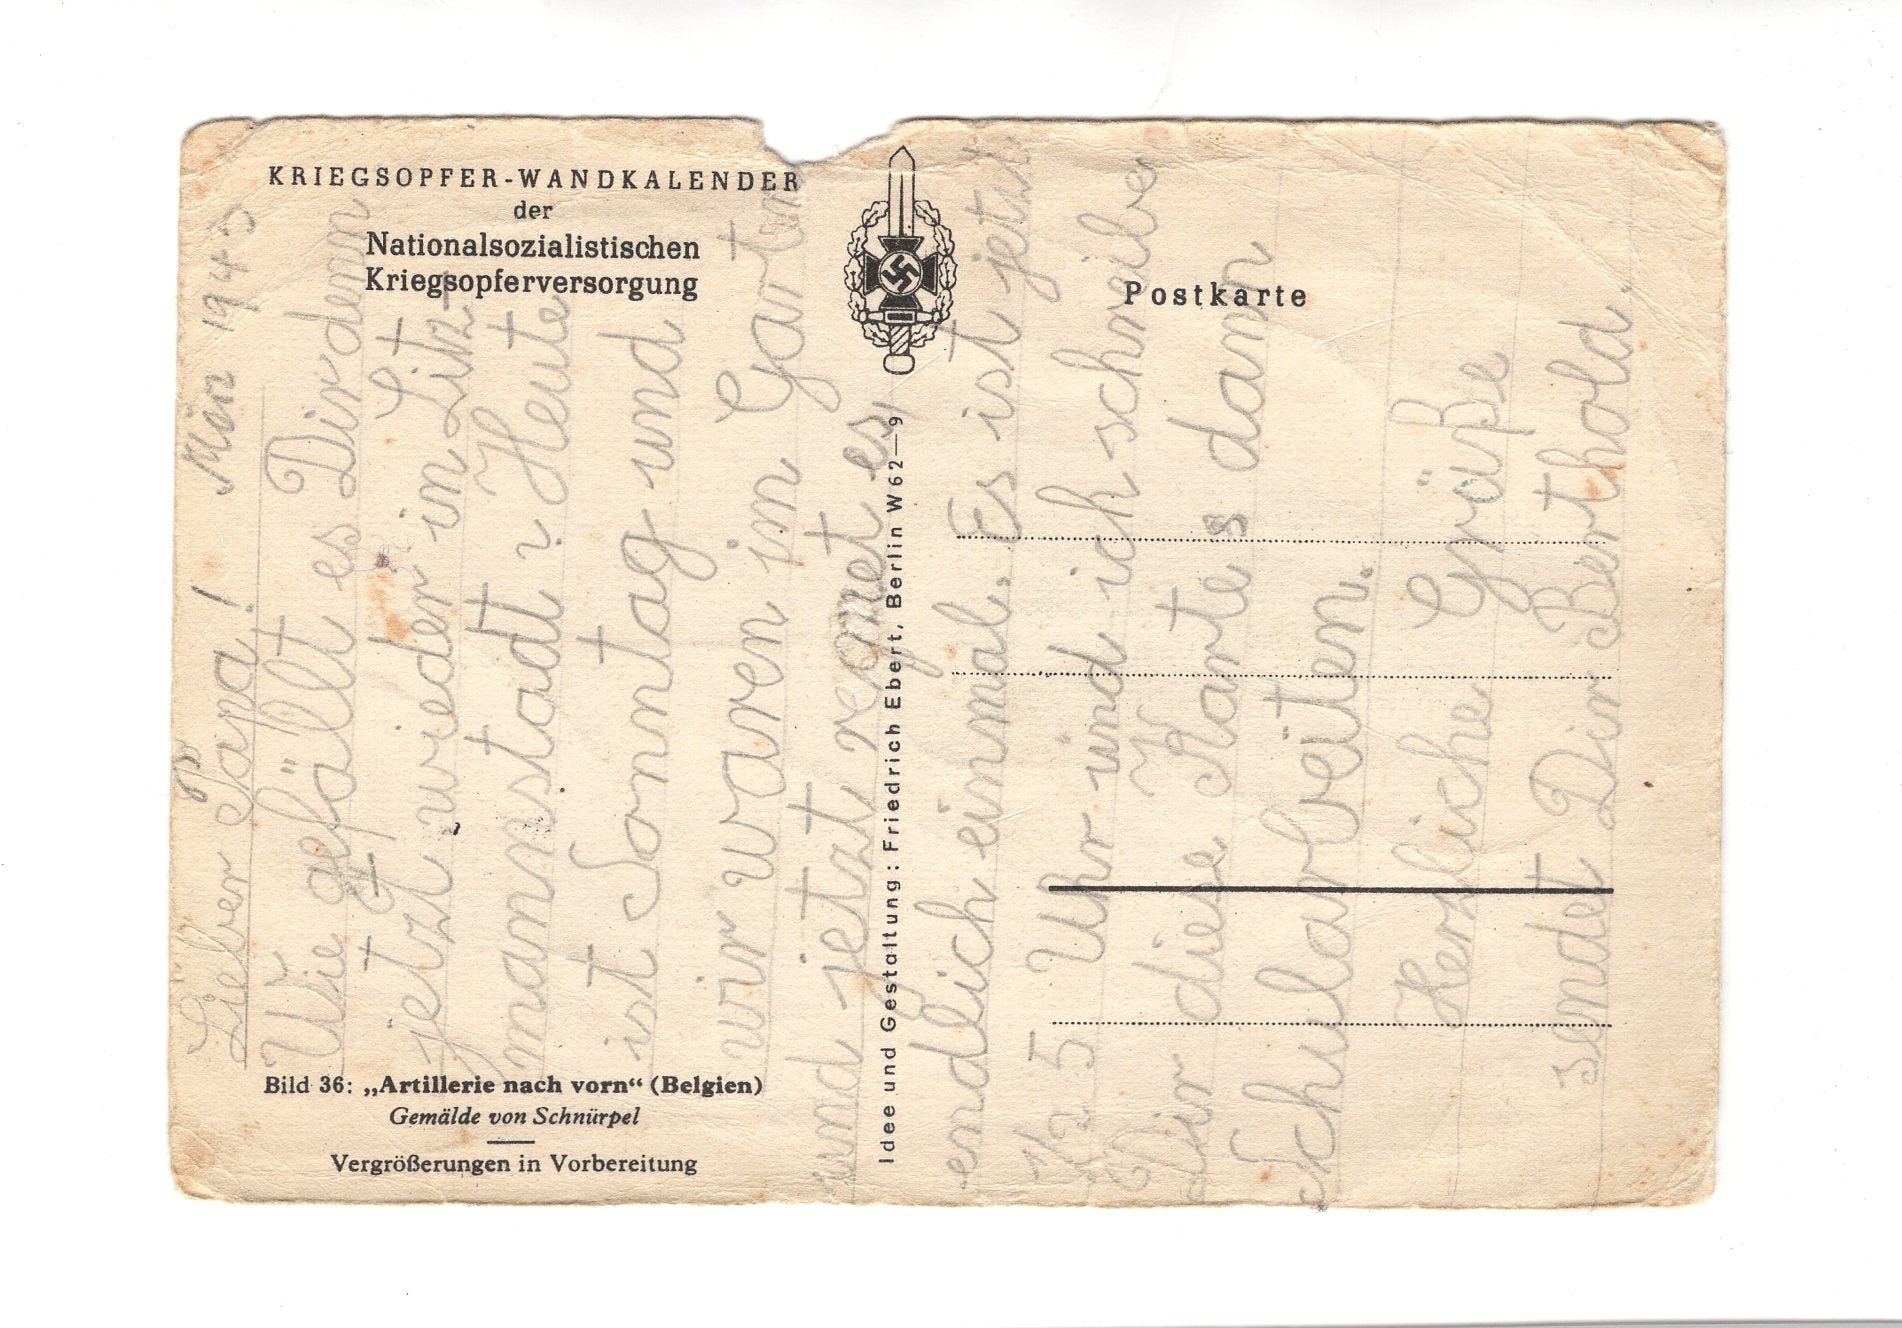 KRIEGSOPFER-WANDKALENDER
der
Nationalsozialistischen
Kriegsopferversorgung
Postkarte
Idee und Gestaltung: Friedrich Ebert, Berlin W62—9
Bild 36: „Artillerie nach vorn“ (Belgien)
Gemälde von Schnürpel
Vergrößerungen in Vorbereitung
März 1943
Lieber Papa!
Wie gefällt es Dir denn
jetzt wieder in Litz-
mannstadt? Heute
ist Sonntag und
wir waren im Garten
und jetzt regnet es
endlich einmal. Es ist jetzt
1/2 5 Uhr und ich schreibe
Dir diese Karte dann
Schularbeiten.
Herzliche Grüße
sendet Dir Berthold.